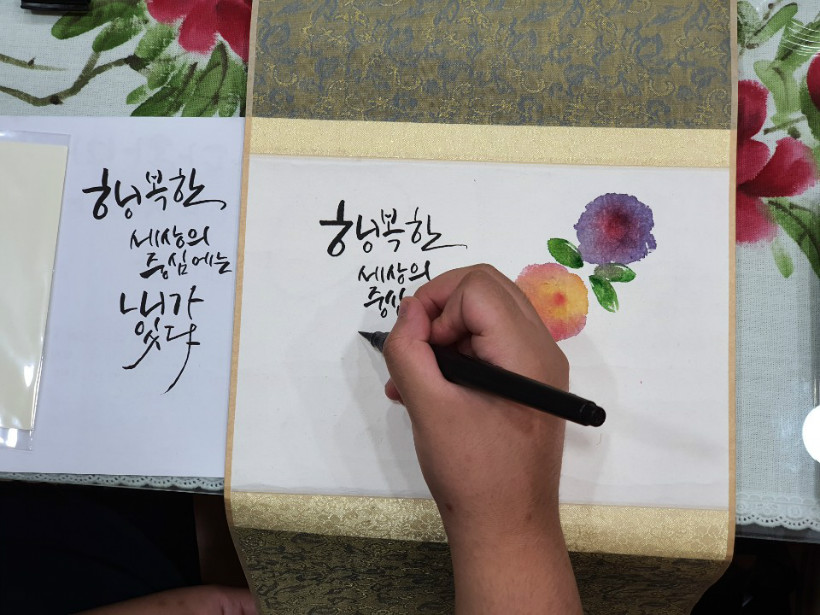 행복한
세상의
중심에는
내가
있다
행복한
세상의
중심